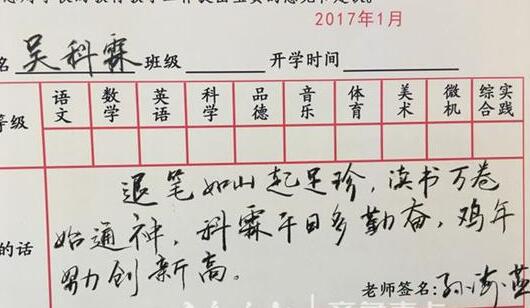 2017年1月
名 吴科霖 班级 开学时间
等级 语文 数学 英语 科学 品德 音乐 体育 美术 微机 综合实践
退笔如山起足珍，读书万卷
始通神，科霖平日多勤奋，鸡年
努力创新高。
的话
老师签名：孙海燕